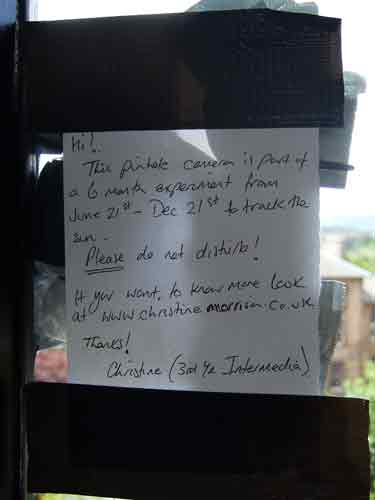 Hi!
This pinhole camera is part of
a 6 month experiment from
June 21st - Dec 21st to track the
sun.
Please do not disturb!
If you want to know more look
at www.christinemorrison.co.uk
Thanks!
Christine (3rd Yr Intermedia)